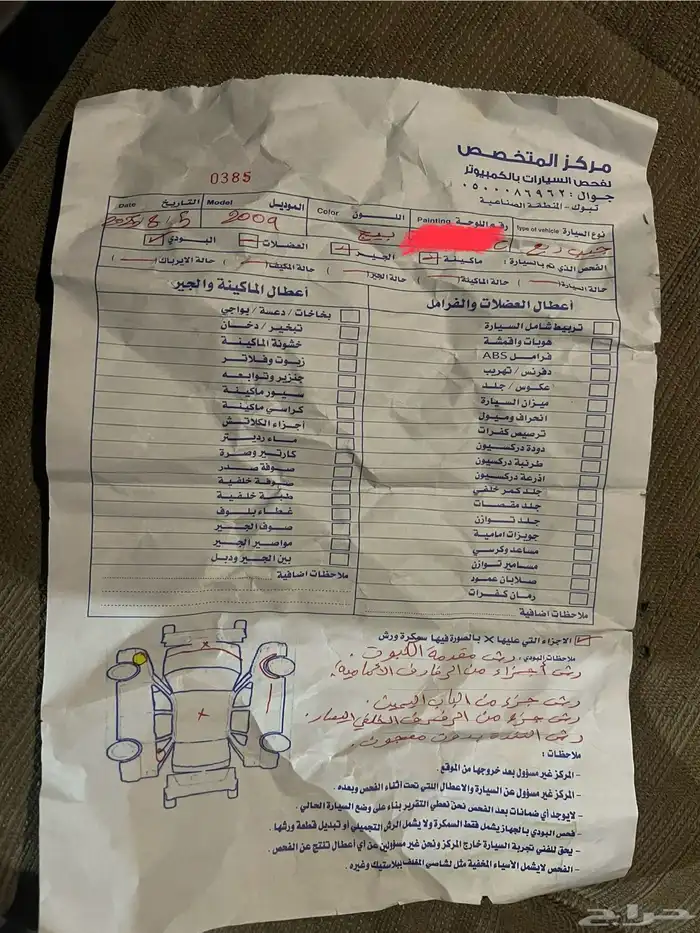 مركز المتخصص
لفحص السيارات بالكمبيوتر
جوال : ٠٥٠٠٠٨٦٩٦٢
تبوك - المنطقة الصناعية
0385
نوع السيارة type of vehicle رقم اللوحة Painting اللون Color الموديل Model التاريخ Date
بيج 2009 2025/8/5
الفحص الذي تم بالسيارة : ماكينة الجير العضلات البودي
حالة السيارة ( ) حالة الماكينة ( ) حالة الجير ( ) حالة المكيف ( ) حالة الايرباك ( )
أعطال العضلات والفرامل
تربيط شامل السيارة
هوبات واقمشة
فرامل ABS
دفرنس / تهريب
عكوس / جلد
ميزان السيارة
انحراف وميول
ترصيص كفرات
دودة دركسيون
طرنبة دركسيون
اذرعة دركسيون
جلد كمر خلفي
جلد مقصات
جلد توازن
جويزات امامية
مساعد وكرسي
مسامير توازن
صلايان عمود
رمان كفرات
ملاحظات اضافية
أعطال الماكينة والجير
بخاخات / دعسة / بواجي
تبخير / دخان
خشونة الماكينة
زيوت وفلاتر
جنزير وتوابعه
سيور ماكينة
كراسي ماكينة
أجزاء الكلاتش
ماء رديتر
كارتير وصرة
صوفة صدر
صوفة خلفية
طبة خلفية
غطاء بلوف
صوف الجير
مواصير الجير
بين الجير ودبل
ملاحظات اضافية
الاجزاء التي عليها × بالصورة فيها سمكرة ورش
ملاحظات البودي : رش مقدمة الكبوت .
رش أجزاء من الرفارف الأمامية .
رش جزء من الباب اليمين .
رش جزء من الرفرف الخلفي اليسار .
رش بدون معجون .
ملاحظات :
- المركز غير مسؤول بعد خروجها من الموقع .
- المركز غير مسؤول عن السيارة والاعطال اللتي تحت أثناء الفحص وبعده .
- لايوجد أي ضمانات بعد الفحص نحن نعطي التقرير بناء على وضع السيارة الحالي .
- فحص البودي بالجهاز يشمل فقط السمكرة ولا يشمل الرش التجميلي أو تبديل قطعة ورشها .
- يحق للفني تجربة السيارة خارج المركز ونحن غير مسؤولين عن أي أعطال تنتج عن الفحص .
- الفحص لايشمل الأسياء المخفية مثل لشاصي المغلف ببلاستيك وغيره .
حراج